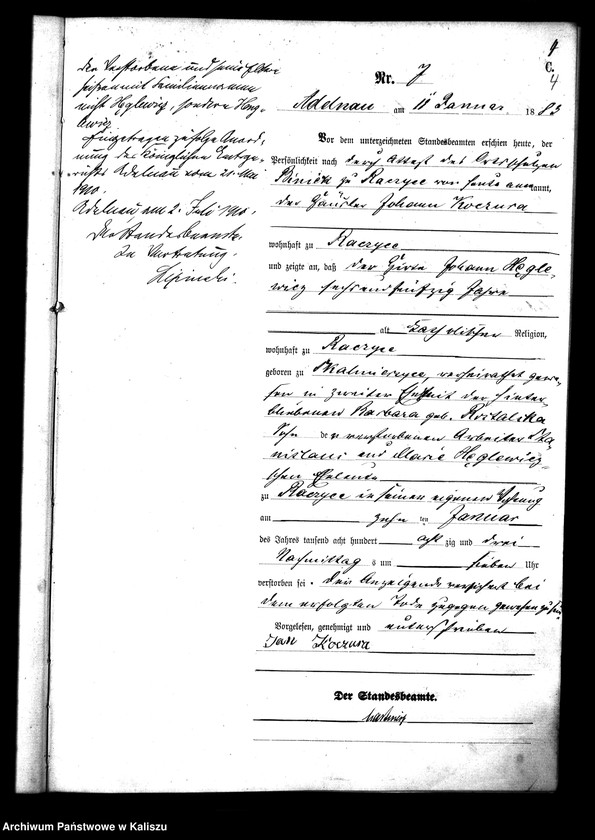 4
C.
4
Nr. 7
Adelnau am 11 Januar 1883
Vor dem unterzeichneten Standesbeamten erschien heute, der
Persönlichkeit nach durch Attest des Ortsschulzen
zu Raczyce von heute anerkannt,
der Häusler Johann Koczura
wohnhaft zu Raczyce
und zeigte an, daß der Hirte Johann Hęgle-
wicz sechsundfünfzig Jahre
alt katholischer Religion,
wohnhaft zu Raczyce
geboren zu Skalmierzyce, verheirathet gewe-
sen in zweiter Ehe mit der hinter
bliebenen Barbara geb.
Sohn der verstorbenen Arbeiter Sta-
nislaus und Marie Hęglewicz-
schen Eheleute
zu Raczyce in seiner eigenen Wohnung
am zehn ten Januar
des Jahres tausend acht hundert acht zig und drei
Nachmittag s um sieben Uhr
verstorben sei. Der Anzeigende versichert bei
dem erfolgten Tode zugegen gewesen zu sein.
Vorgelesen, genehmigt und unterschrieben
Jan Koczura
Der Standesbeamte.
der Verstorbene und seine Eltern
heißen mit Familiennamen
nicht Hęglewicz, sondern Heng-
lewicz
Eingetragen zufolge Anord-
nung des Königlichen Amtsge-
richts Adelnau vom 21. Mai
1910.
Adelnau am 2. Juli 1910.
Der Standesbeamte.
In Vertretung.
Archiwum Państwowe w Kaliszu